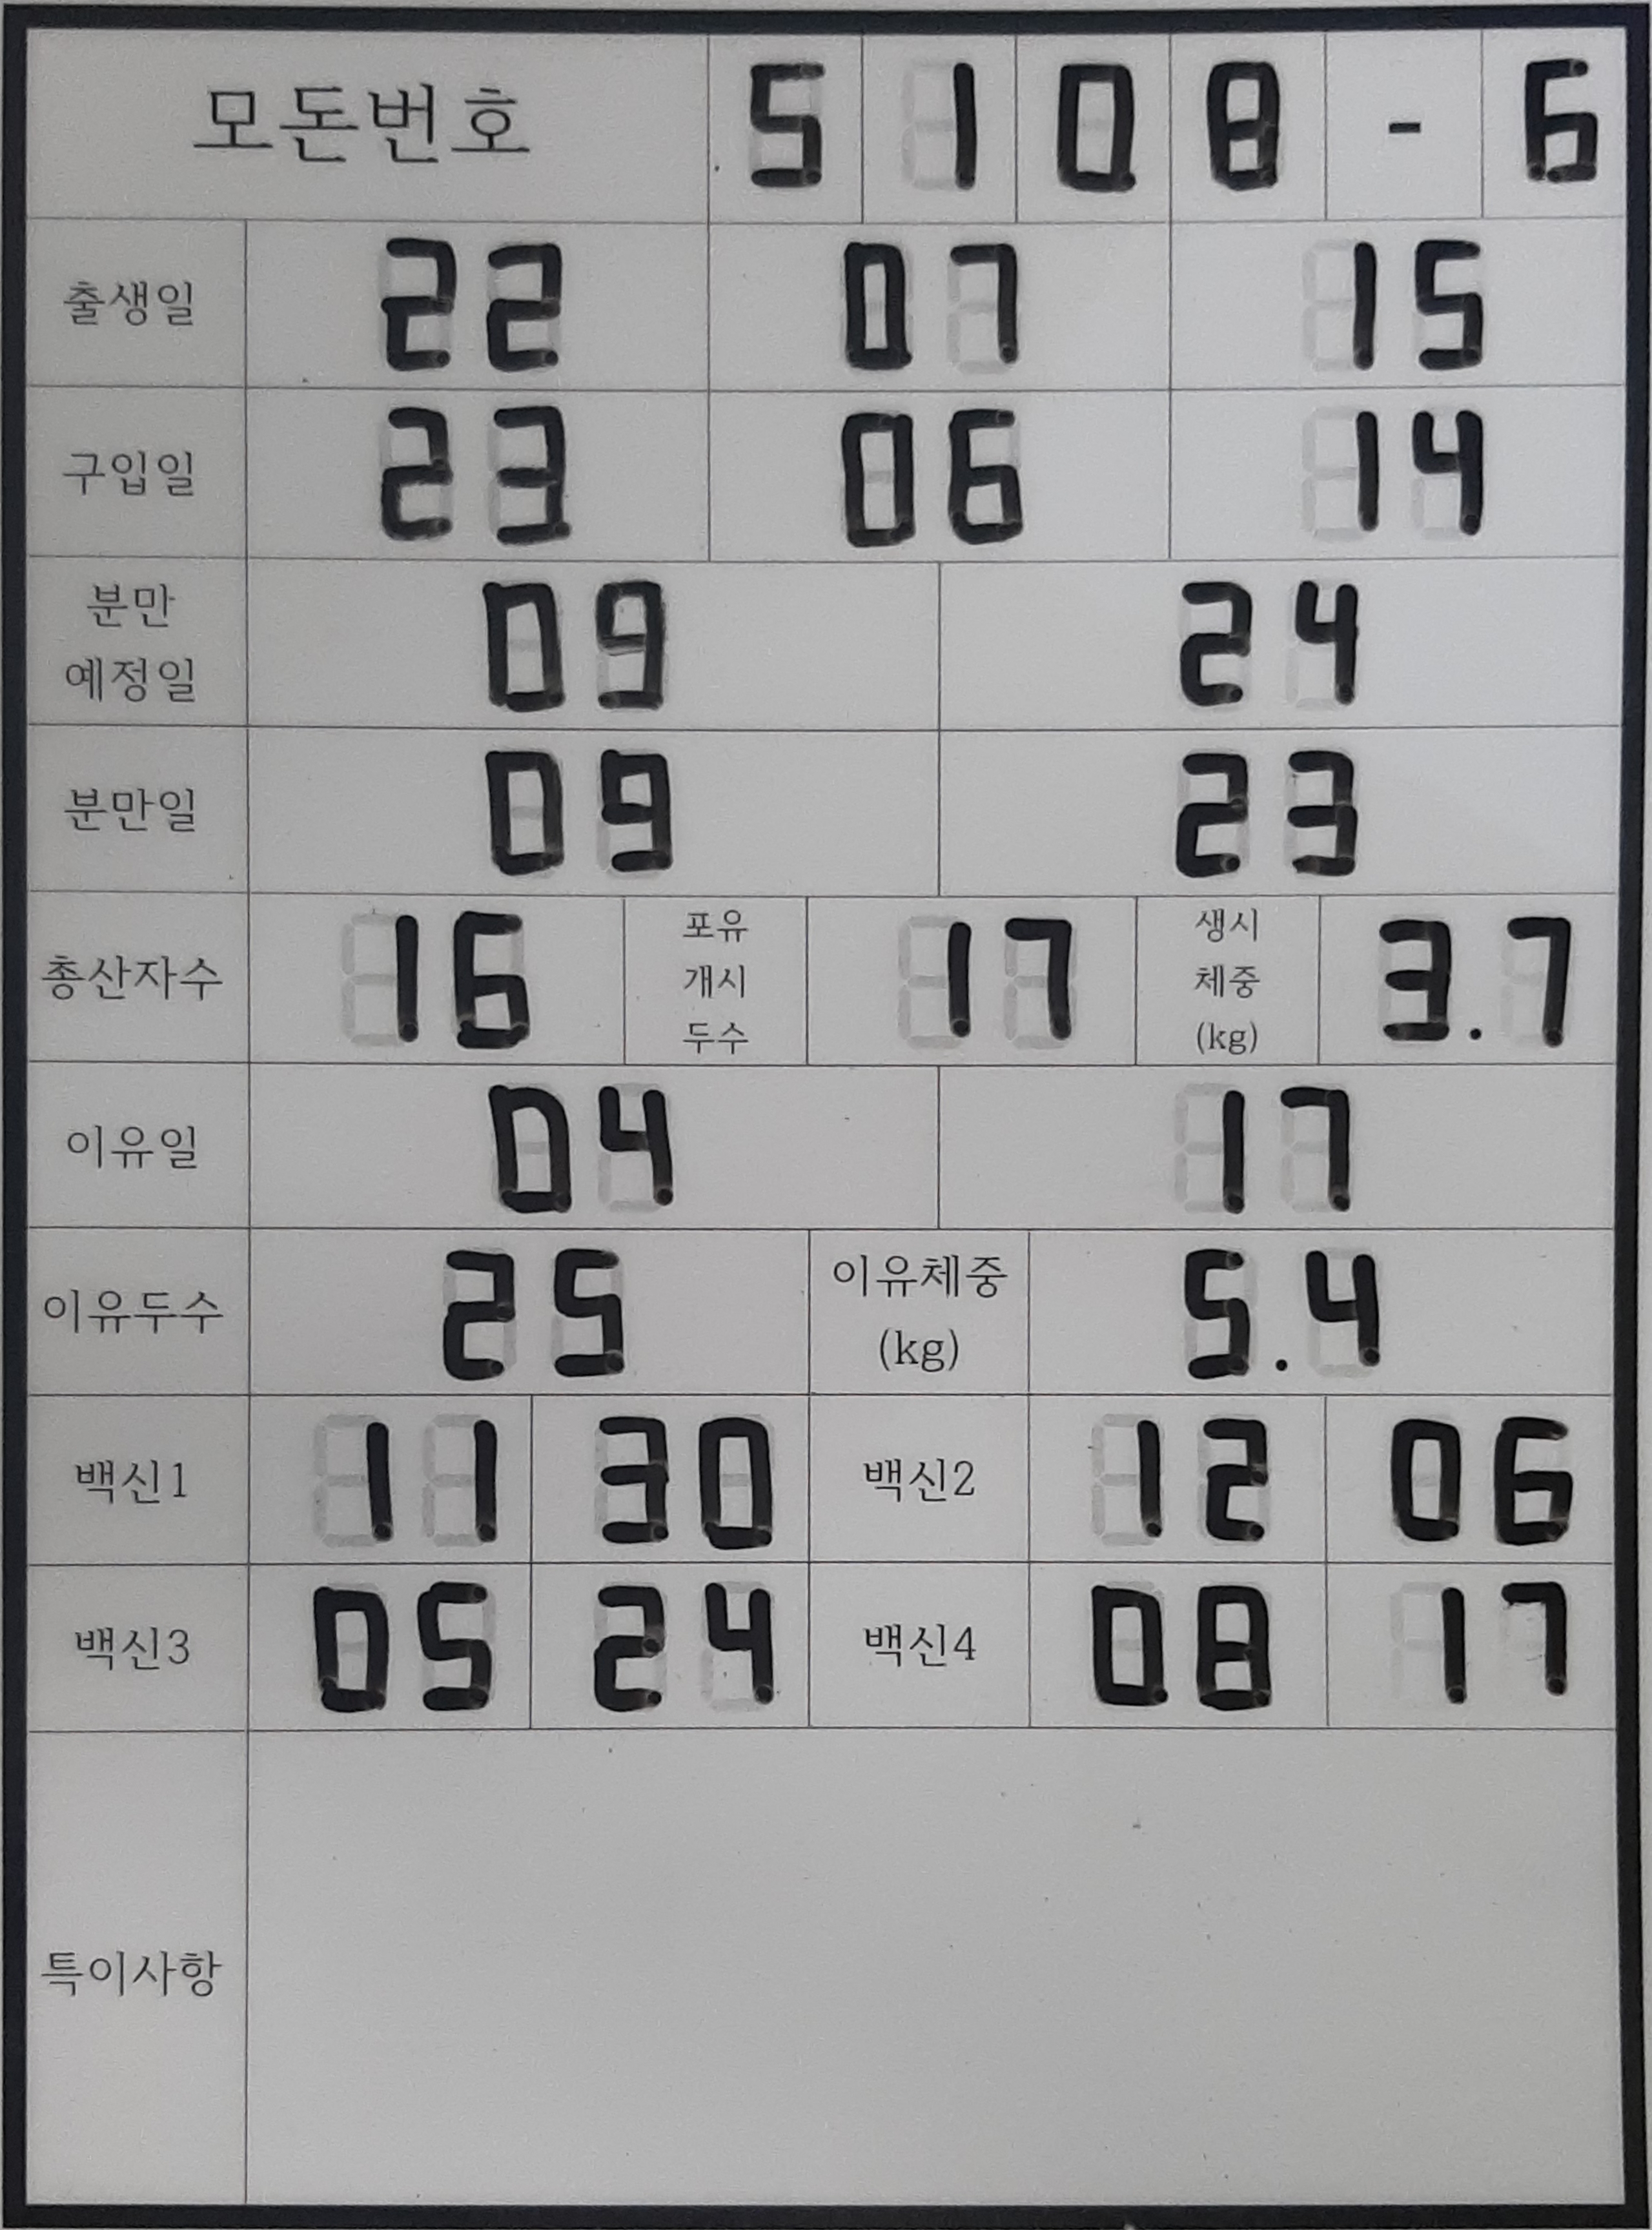 모돈번호 5 1 0 8 - 6
출생일 22 07 15
구입일 23 06 14
분만
예정일 09 24
분만일 09 23
총산자수 16 포유
개시
두수 17 생시
체중
(kg) 3.7
이유일 04 17
이유두수 25 이유체중
(kg) 5.4
백신1 11 30 백신2 12 06
백신3 05 24 백신4 08 17
특이사항